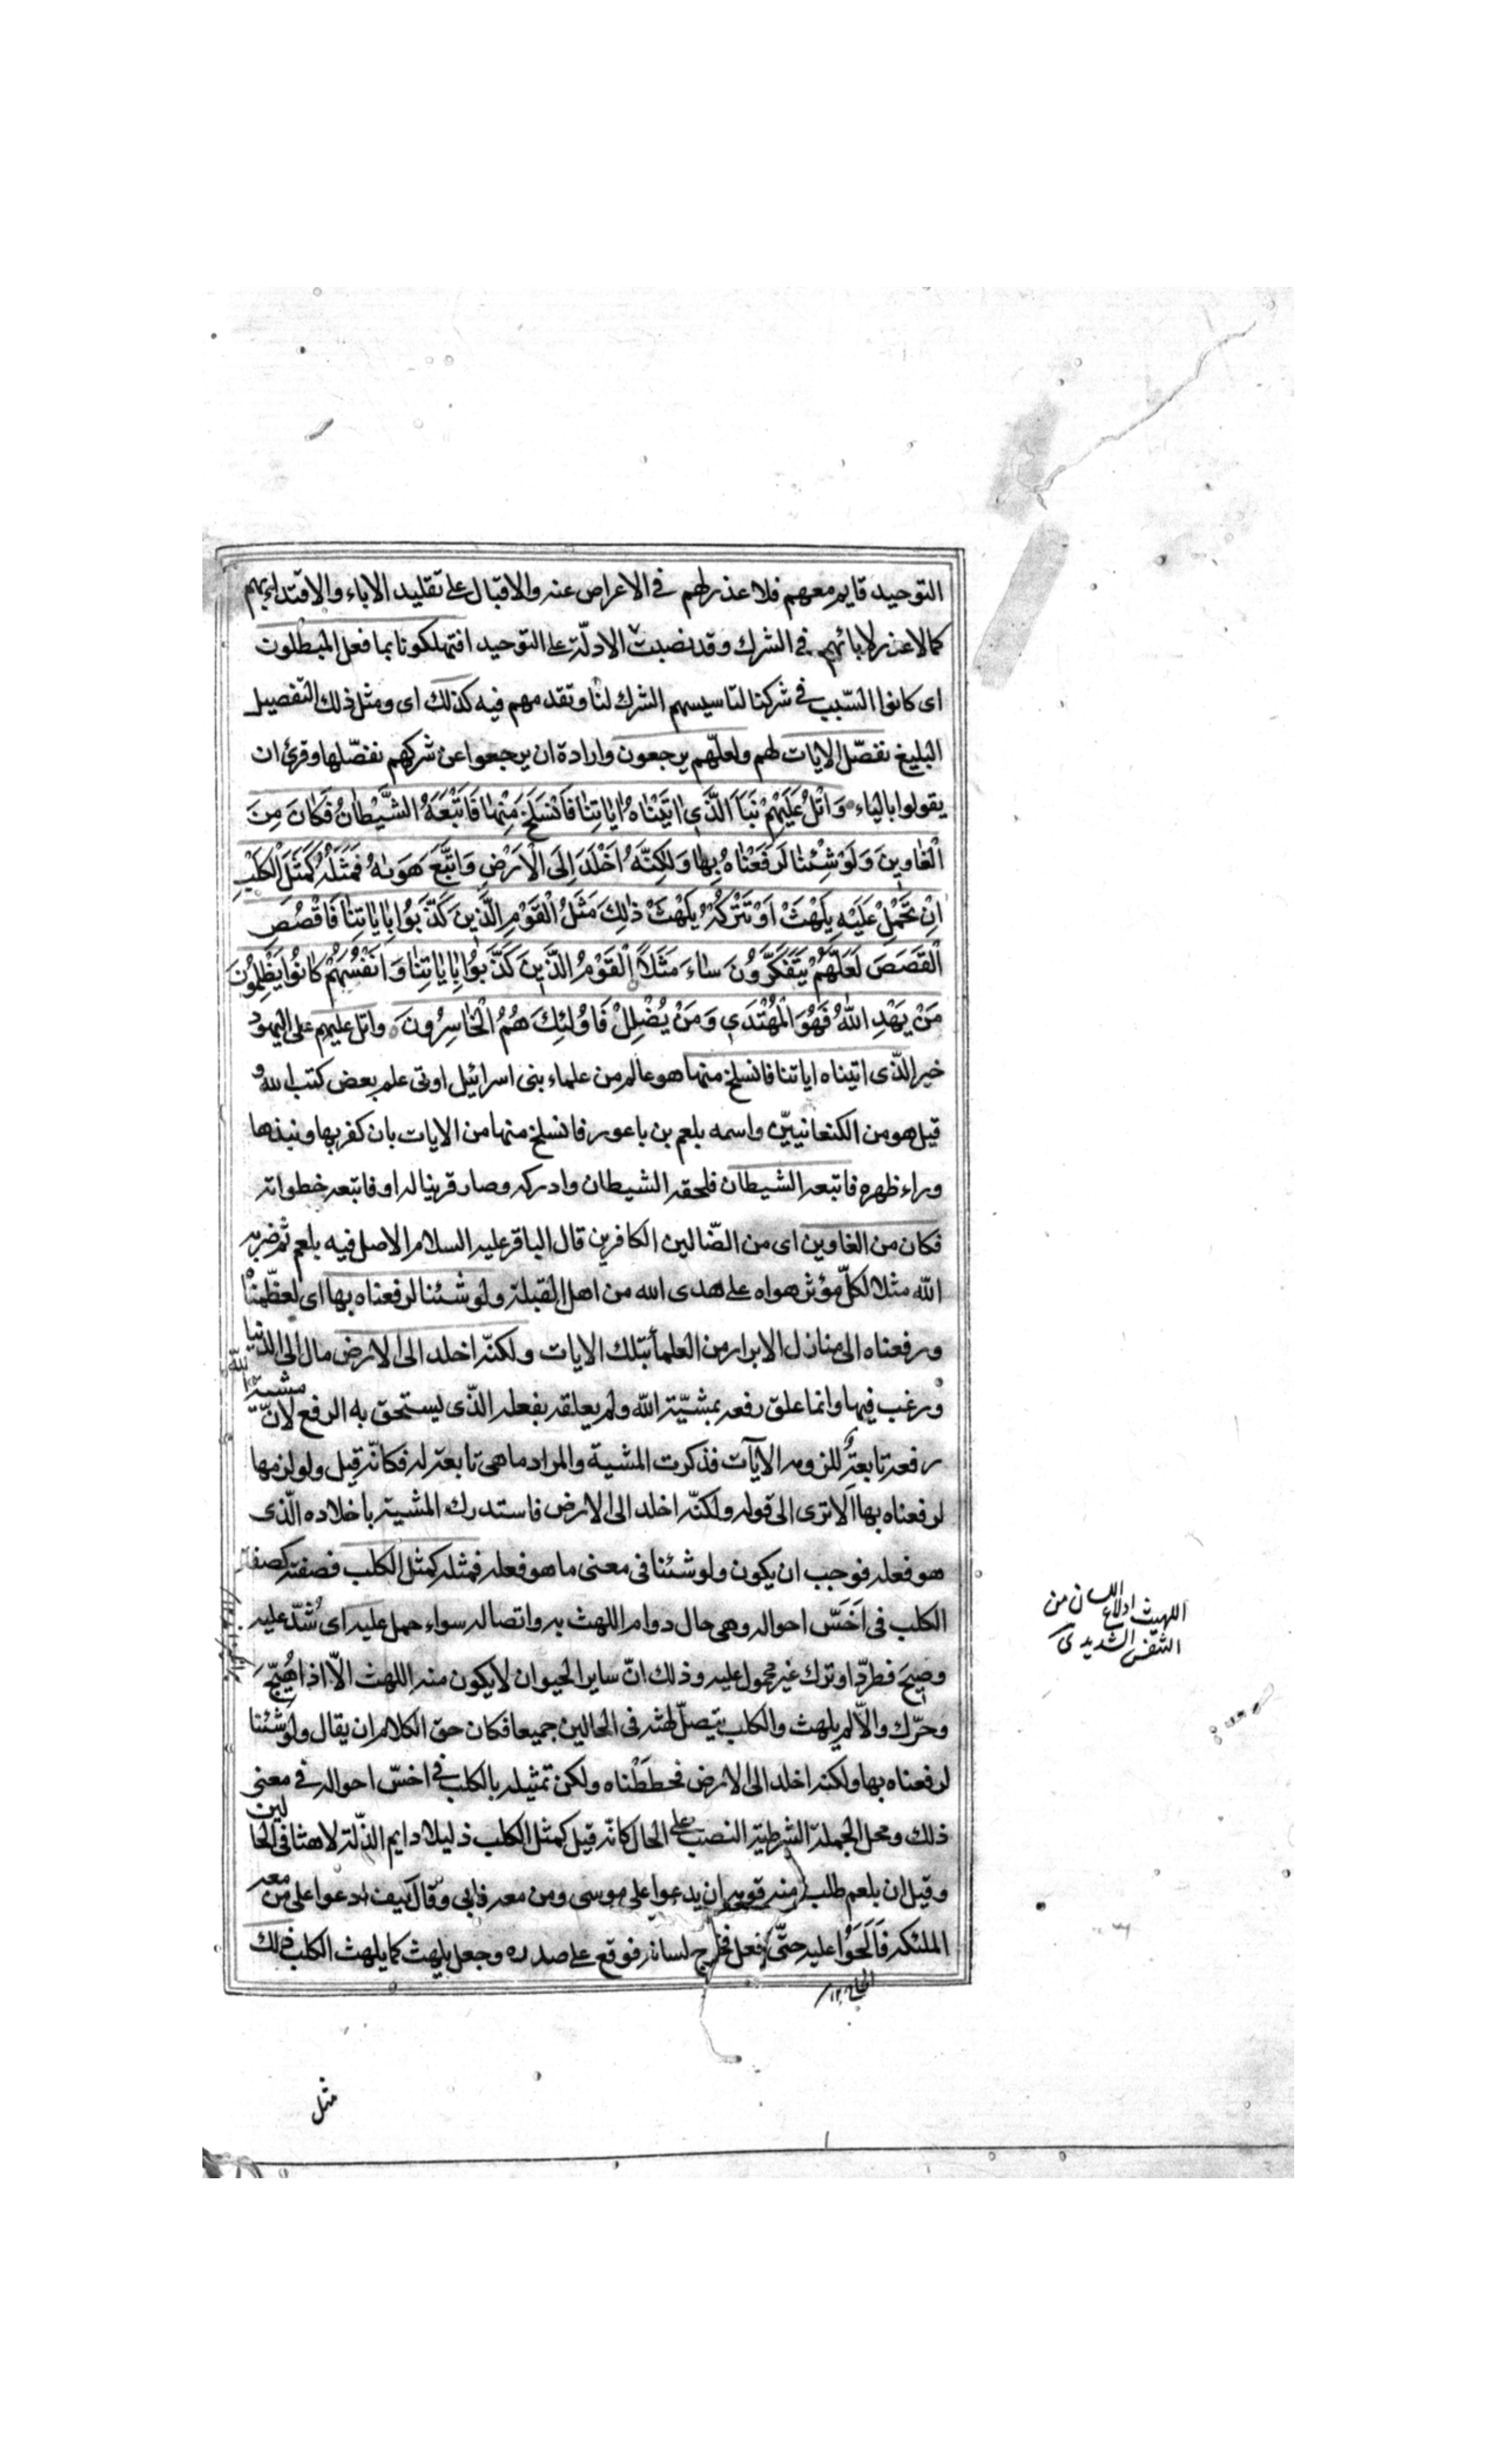 التوحيد قايم معهم فلا عذر لهم في الاعراض عنه والاقبال على تقليد الاباء والاقتداء بهم
كما لا عذر لابائهم في الشرك وقد نصبت الادلّة على التوحيد افتهلكونا بما فعل المبطلون
اى كانوا السّبب في شركنا لتاسيسهم الشرك لنا وتقدمهم فيه كذلك اى ومثل ذلك التفصيل
البليغ نفصّل الايات لهم ولعلّهم يرجعون وارادة ان يرجعوا عن شركهم نفصّلها وقرئ ان
يقولوا بالياء وَاتْلُ عَلَيْهِمْ نَبَأَ الَّذَي اٰتَيْنَاهُ اٰيٰاتِنٰا فَانْسَلَخَ مِنْهٰا فَاَتْبَعَهُ الشَّيْطٰانُ فَكٰانَ مِنَ
الْغٰاوِينَ وَلَوْ شِئْنٰا لَرَفَعْنٰاهُ بِهٰا وَلٰكِنَّهُ اَخْلَدَ اِلَى الْاَرْضِ وَاتَّبَعَ هَوٰىهُ فَمَثَلُهُ كَمَثَلِ الْكَلْبِ
اِنْ تَحْمِلْ عَلَيْهِ يَلْهَثْ اَوْ تَتْرُكْهُ يَلْهَثْ ذٰلِكَ مَثَلُ الْقَوْمِ الَّذِينَ كَذَّبُوا بِاٰيٰاتِنٰا فَاقْصُصِ
الْقَصَصَ لَعَلَّهُمْ يَتَفَكَّرُونَ سٰاءَ مَثَلاً الْقَوْمُ الَّذِينَ كَذَّبُوا بِاٰيٰاتِنٰا وَاَنْفُسَهُمْ كٰانُوا يَظْلِمُونَ
مَنْ يَهْدِ اللّٰهُ فَهُوَ الْمُهْتَدِي وَمَنْ يُضْلِلْ فَاُولٰئِكَ هُمُ الْخٰاسِرُونَ واتل عليهم على اليهود
خبر الّذى اتيناه اياتنا فانسلخ منها هو عالم من علماء بنى اسرائيل اوتى علم بعض كتب الله و
قيل هو من الكنعانييّن واسمه بلعم بن باعور فانسلخ منها من الايات بان كفر بها ونبذها
وراء ظهره فاتبعه الشيطان فلحقه الشيطان وادركه وصار قرينا له او فاتبعه خطواته
فكان من الغاوين اى من الضّالين الكافرين قال الباقر عليه السلام الاصل فيه بلعم ثم ضربه
الله مثلا لكلّ مؤثر هواه على هدى الله من اهل القبلة ولو شئنا لرفعناه بها اى لعظّمناه
ورفعناه الى منازل الابرار من العلماء بتلك الايات ولكنّه اخلد الى الارض مال الى الدنيا
ورغب فيها وانما علق رفعه بمشيّة الله ولم يعلقه بفعله الّذى يستحق به الرفع لانّ مشية الله
رفعه تابعة للزومه الايآت فذكرت المشية والمراد ما هى تابعة له فكانّه قيل ولو لزمها
لرفعناه بها الا ترى الى قوله ولكنّه اخلد الى الارض فاستدرك المشية باخلاده الّذى
هو فعله فوجب ان يكون ولو شئنا فى معنى ما هو فعله فمثله كمثل الكلب فصفته كصفة
الكلب فى اَخَسّ احواله وهى حال دوام اللهث به واتصاله سواء حمل عليه اى شُدّ عليه
وصِيحَ فطرد او ترك غير محمول عليه وذلك انّ ساير الحيوان لا يكون منه اللهث الاّ اذا هُيّجَ
وحرّك والاّ لم يلهث والكلب يتصلّ لهثه فى الحالين جميعا فكان حق الكلام ان يقال ولو شئنا
لرفعناه بها ولكنه اخلد الى الارض فحططْناه ولكن تمثيله بالكلب في اخسّ احواله في معنى
ذلك ومحل الجملة الشرطية النصب على الحال كانّه قيل كمثل الكلب ذليلا دايم الذّلة لاهثا فى الحالين
وقيل ان بلعم طلب منه قومه ان يدعوا على موسى ومن معه فابى وقال كيف ادعوا على من معه
الملئكة فَاَلَحّوُا عليه حتّى فعل فخرج لسانه فوقع على صدره وجعل يلهث كما يلهث الكلب ذلك
اللهث ادلاع اللسان من
التنفس الشديد
مثل